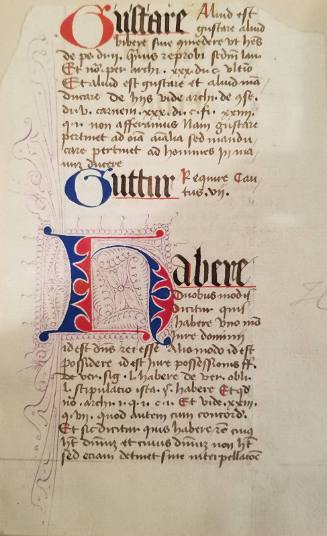 Gustare Aliud est
gustare aliud
bibere siue
de pe. di. reprobi
Et no. per archi. xxx. di. c. vltio
Et aliud est gustare et aliud
ducare de his vide archi. de
carnem. xxx. di. c. fi. xxiii.
q. ii. non afferamus Nam gustare
pertinet ad oia aialia sed mandu
care pertinet ad homines
ducere
Guttur Require Cau
tus. vii.
Habere
Duobus modis
dicitur quis
habere vno mo
iure dominii
id est dns rei esse Alio modo id est
possidere id est iure possessionis ff.
de ver. sig. l. habere de ver. obli.
l. stipulatio ista §. habere Et id
no. archi. i. q. i. c. i. Et vide. xxiii.
q. vii. quod autem cum concord.
Et sic dicitur quis habere rem
ht et cuius non ht
sed eciam detinet sine interpellatoe